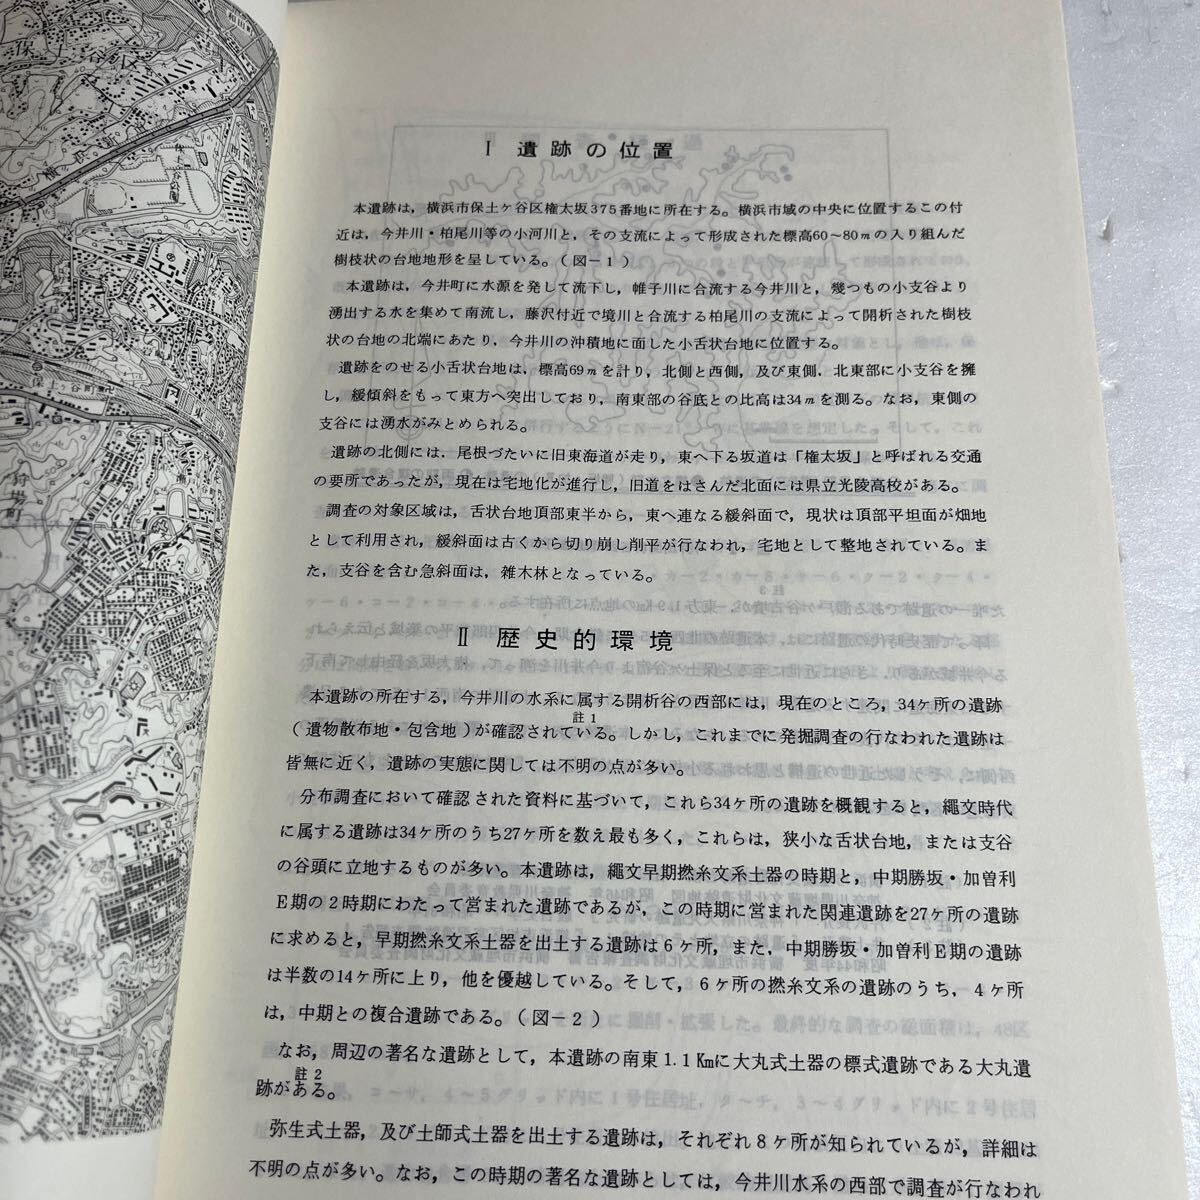 保土ヶ谷区
和田町
保土ヶ谷公園
保土ヶ谷町
狩場町
I 遺跡の位置
本遺跡は，横浜市保土ヶ谷区権太坂375番地に所在する。横浜市域の中央に位置するこの付
近は，今井川・柏尾川等の小河川と，その支流によって形成された標高60〜80mの入り組んだ
樹枝状の台地地形を呈している。（図－1）
本遺跡は，今井町に水源を発して流下し，帷子川に合流する今井川と，幾つもの小支谷より
湧出する水を集めて南流し，藤沢付近で境川と合流する柏尾川の支流によって開析された樹枝
状の台地の北端にあたり，今井川の沖積地に面した小舌状台地に位置する。
遺跡をのせる小舌状台地は，標高69mを計り，北側と西側，及び東側．北東部に小支谷を擁
し，緩傾斜をもって東方へ突出しており，南東部の谷底との比高は34mを測る。なお，東側の
支谷には湧水がみとめられる。
遺跡の北側には．尾根づたいに旧東海道が走り，東へ下る坂道は「権太坂」と呼ばれる交通
の要所であったが，現在は宅地化が進行し，旧道をはさんだ北面には県立光陵高校がある。
調査の対象区域は，舌状台地頂部東半から，東へ連なる緩斜面で，現状は頂部平坦面が畑地
として利用され，緩斜面は古くから切り崩し削平が行なわれ，宅地として整地されている。ま
た，支谷を含む急斜面は，雑木林となっている。
II 歴史的環境
本遺跡の所在する，今井川の水系に属する開析谷の西部には，現在のところ，34ヶ所の遺跡
註1
（遺物散布地・包含地）が確認されている。しかし，これまでに発掘調査の行なわれた遺跡は
皆無に近く，遺跡の実態に関しては不明の点が多い。
分布調査において確認された資料に基づいて，これら34ヶ所の遺跡を概観すると，縄文時代
に属する遺跡は34ヶ所のうち27ヶ所を数え最も多く，これらは，狭小な舌状台地，または支谷
の谷頭に立地するものが多い。本遺跡は，縄文早期撚糸文系土器の時期と，中期勝坂・加曽利
E期の2時期にわたって営まれた遺跡であるが，この時期に営まれた関連遺跡を27ヶ所の遺跡
に求めると，早期撚糸文系土器を出土する遺跡は6ヶ所，また，中期勝坂・加曽利E期の遺跡
は半数の14ヶ所に上り，他を優越している。そして，6ヶ所の撚糸文系の遺跡のうち，4ヶ所
は，中期との複合遺跡である。（図－2）
なお，周辺の著名な遺跡として，本遺跡の南東1.1Kmに大丸式土器の標式遺跡である大丸遺
註2
跡がある。
弥生式土器，及び土師式土器を出土する遺跡は，それぞれ8ヶ所が知られているが，詳細は
不明の点が多い。なお，この時期の著名な遺跡としては，今井川水系の西部で調査が行なわれ